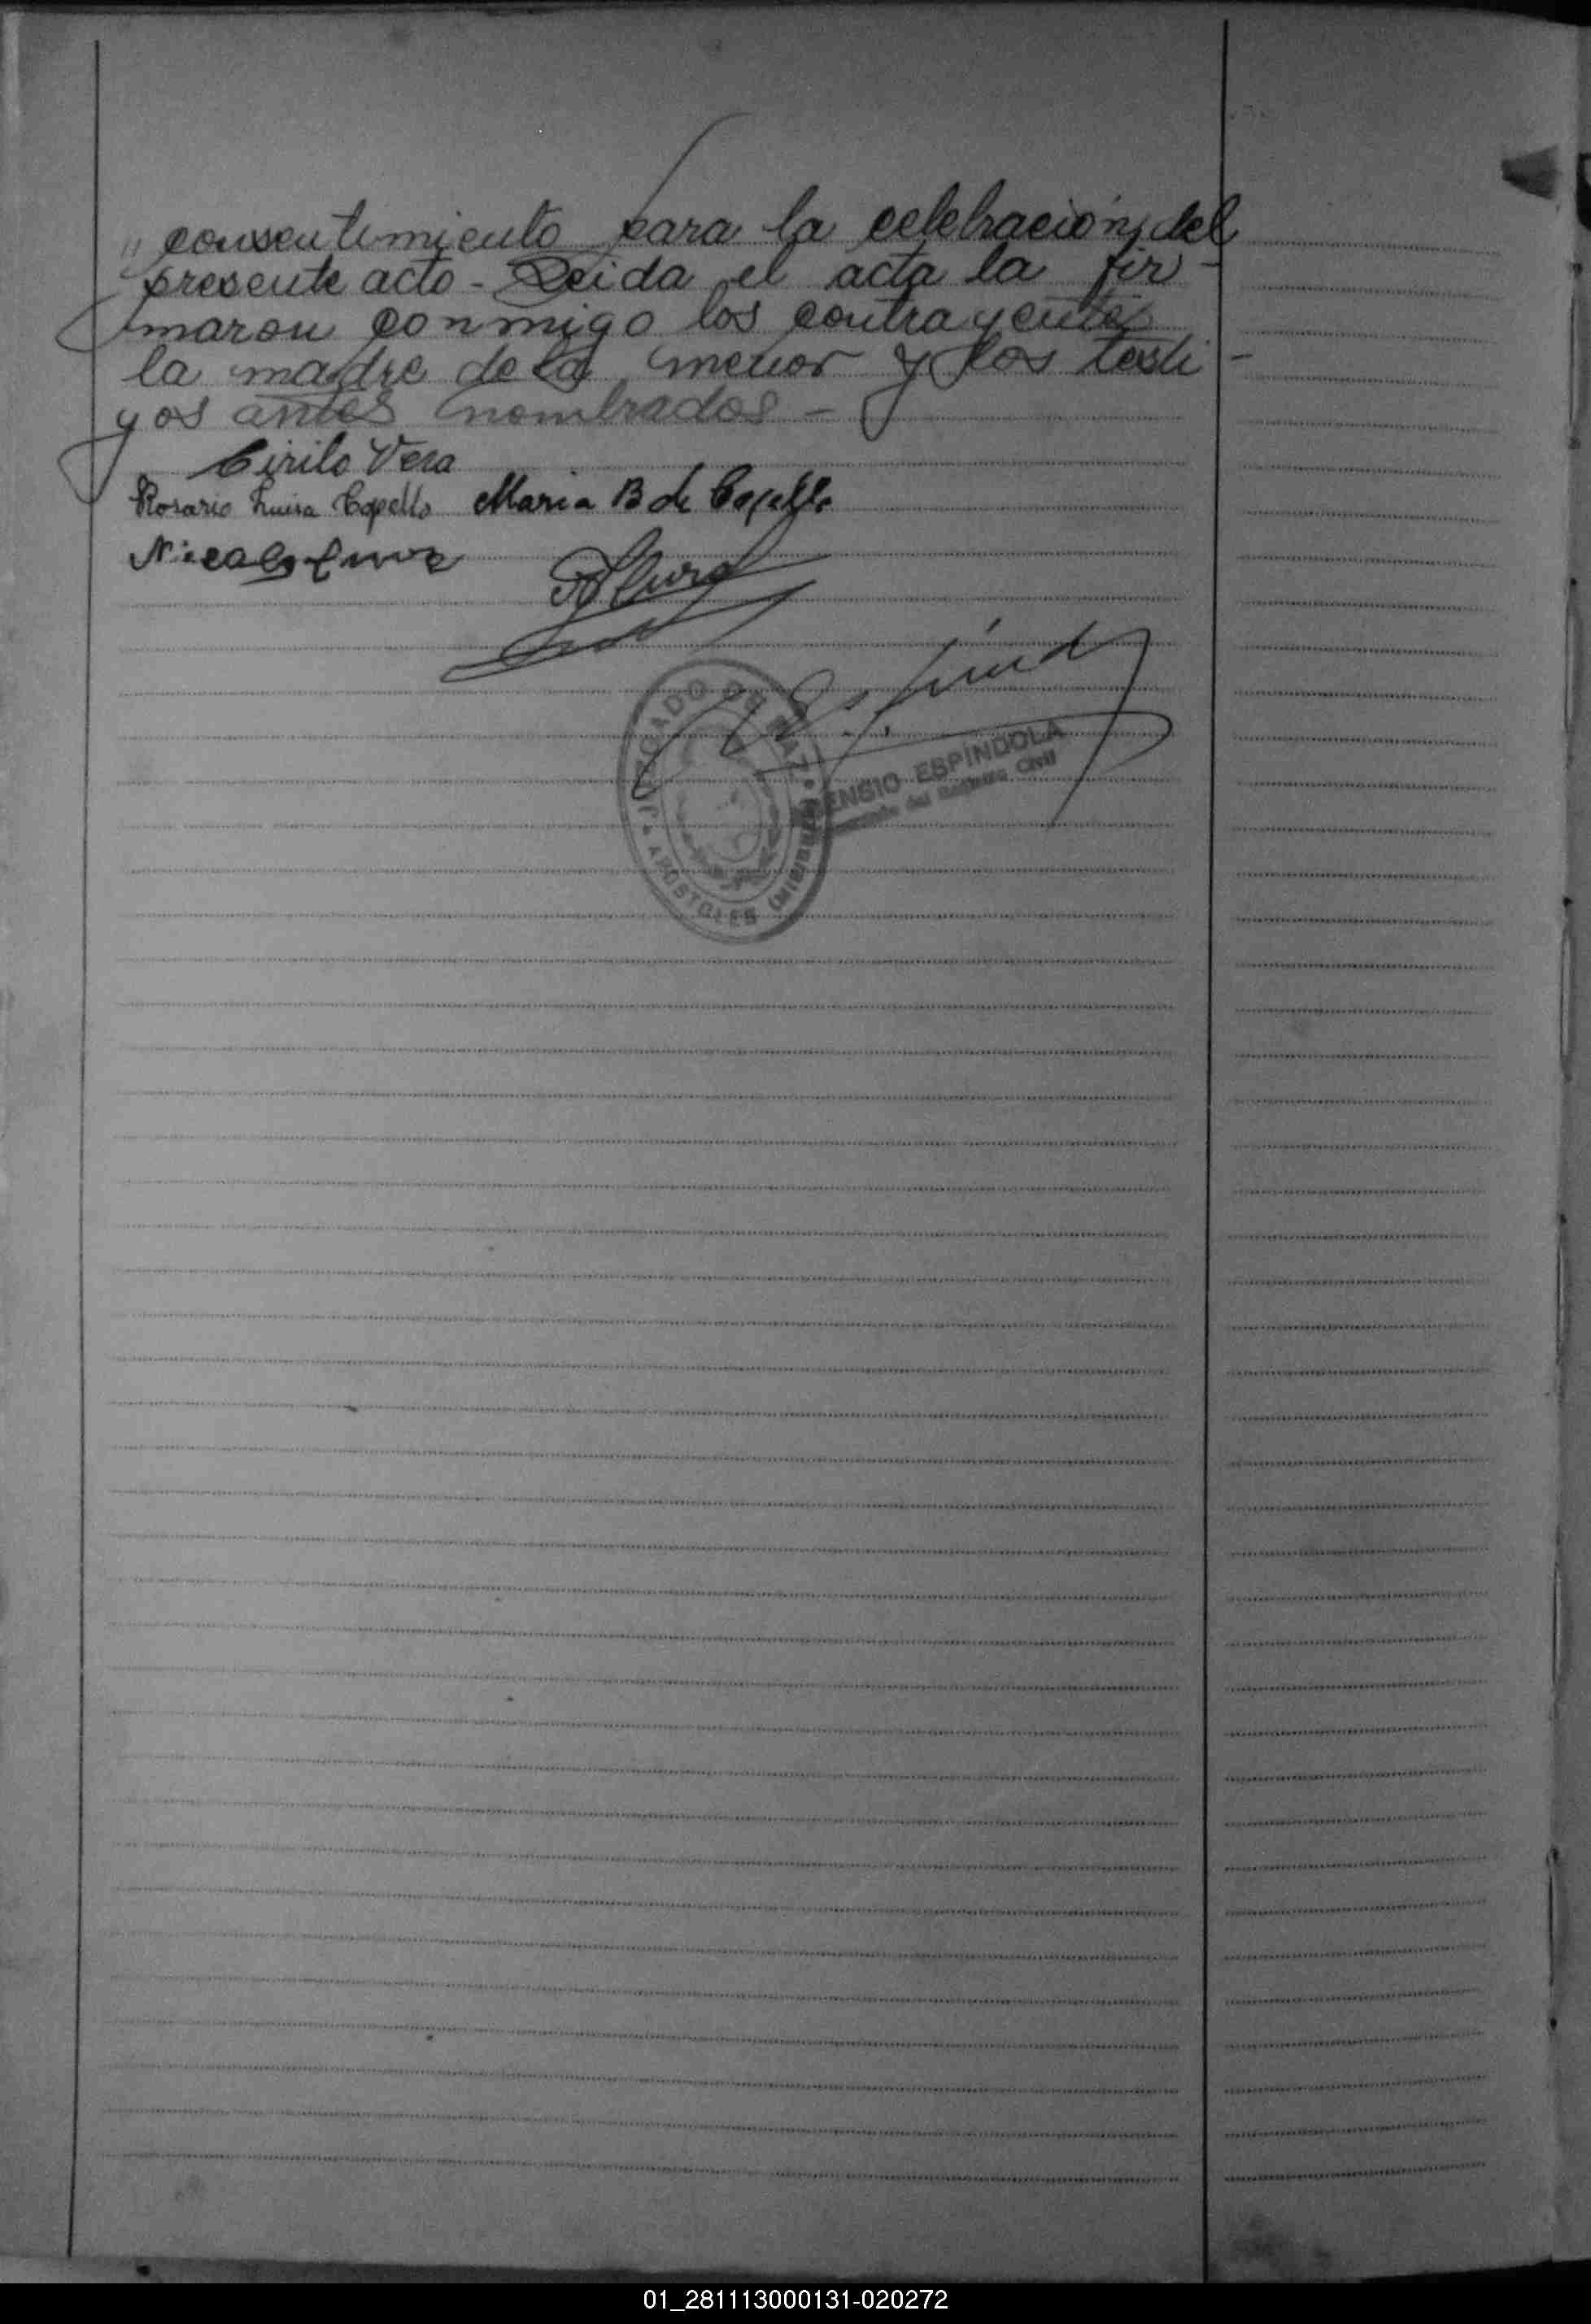 " consentimiento para la celebración del
presente acto - Leida el acta la fir-
maron conmigo los contrayentes
la madre de la menor y los testi-
gos antes nombrados -
Cirilo Vera
Rosario Luisa Copello Maria B de Copello
JUZGADO DE PAZ
APOSTOLES (Misiones)
ESPINDOLA
del Registro Civil
01_281113000131-020272